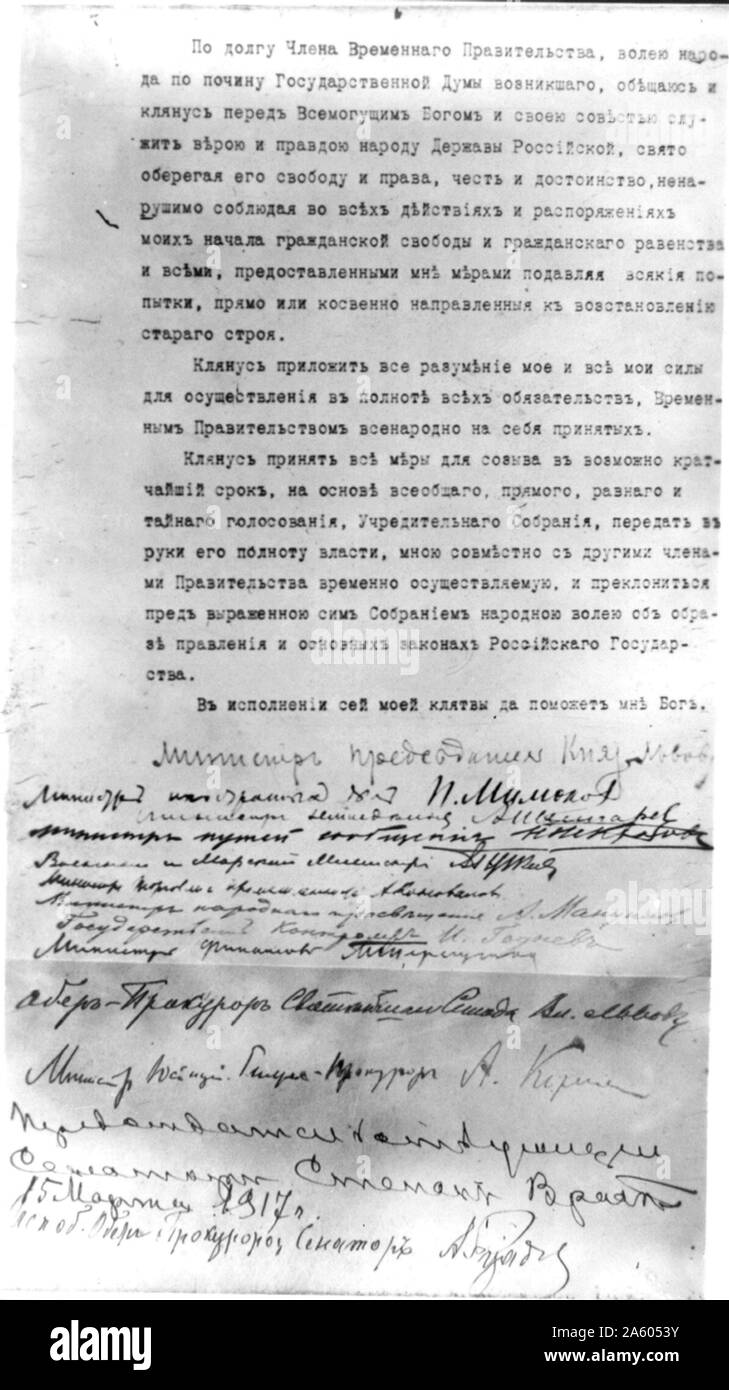 По долгу Члена Временнаго Правительства, волею наро-
да по почину Государственной Думы возникшаго, обѣщаюсь и
клянусь передъ Всемогущимъ Богомъ и своею совѣстью слу-
жить вѣрою и правдою народу Державы Россійской, свято
оберегая его свободу и права, честь и достоинство,нена-
рушимо соблюдая во всѣхъ дѣйствіяхъ и распоряженіяхъ
моихъ начала гражданской свободы и гражданскаго равенства
и всѣми, предоставленными мнѣ мѣрами подавляя всякія по-
пытки, прямо или косвенно направленныя къ возстановленію
стараго строя.
Клянусь приложить все разумѣніе мое и всѣ мои силы
для осуществленія въ полнотѣ всѣхъ обязательствъ, Времен-
нымъ Правительствомъ всенародно на себя принятыхъ.
Клянусь принять всѣ мѣры для созыва въ возможно крат-
чайшій срокъ, на основѣ всеобщаго, прямого, равнаго и
тайнаго голосованія, Учредительнаго Собранія, передать въ
руки его полноту власти, мною совмѣстно съ другими члена-
ми Правительства временно осуществляемую, и преклониться
предъ выраженною симъ Собраніемъ народною волею объ обра-
зѣ правленія и основныхъ законахъ Россійскаго Государ-
ства.
Въ исполненіи сей моей клятвы да поможетъ мнѣ Богъ.
Министръ предсѣдатель Князь Львовъ
Министръ иностранныхъ дѣлъ П. Милюковъ
Министръ земледѣлія А. Шингаревъ
Министръ путей сообщенія Н. Некрасовъ
Военный и Морской Министръ А. Гучковъ
Министръ торговли и промышленности А. Коноваловъ
Министръ народнаго просвѣщенія А. Мануиловъ
Государственный Контролеръ И. Годневъ
Министръ финансовъ М. Терещенко
Оберъ-Прокуроръ Святѣйшаго Синода Вл. Львовъ
Министръ Юстиціи Генер.-Прокуроръ А. Керенскій
Сенаторъ Степанъ
15 Марта 1917 г.
Оберъ Прокурора Сенаторъ
alamy
alamy
Image ID: 2A6053Y
www.alamy.com